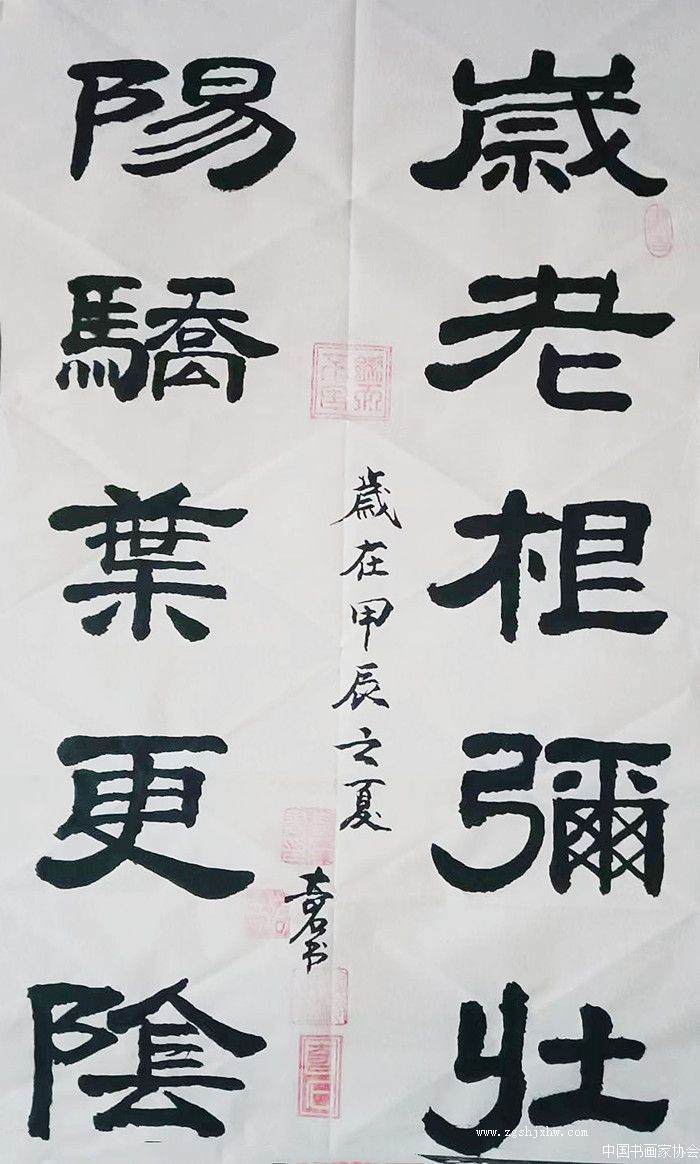 歲老根彌壯
陽驕葉更陰
歲在甲辰之夏
奇石书
www.zgshjxhw.com
中国书画家协会